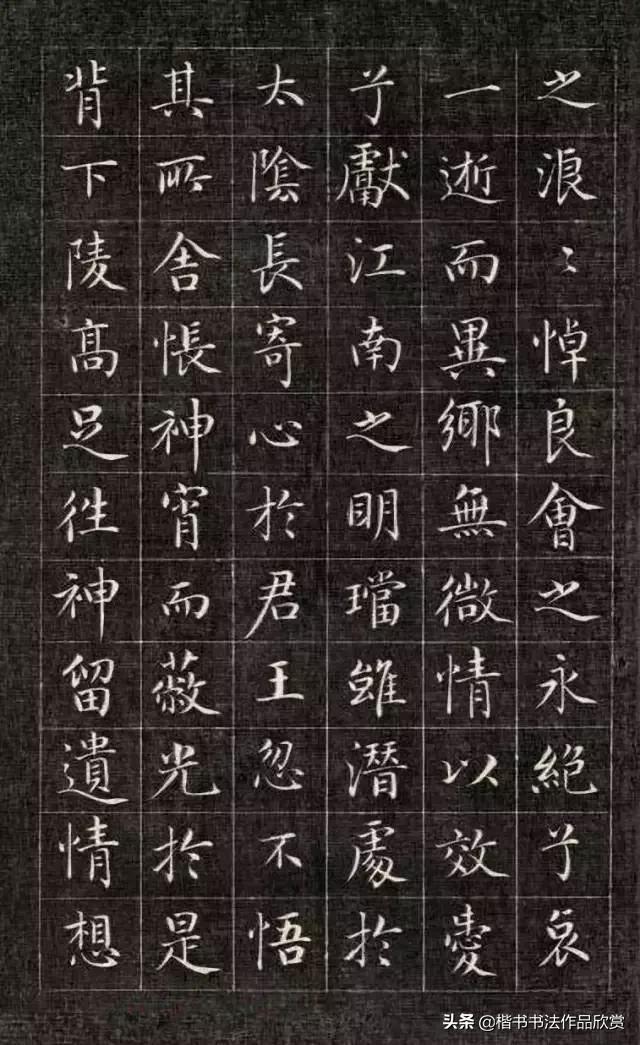 之浪〻悼良會之永絕兮哀
一逝而異鄉無微情以效愛
兮獻江南之明璫雖潛處於
太陰長寄心於君王忽不悟
其所舍悵神宵而蔽光於是
背下陵高足往神留遺情想
头条 @楷书书法作品欣赏